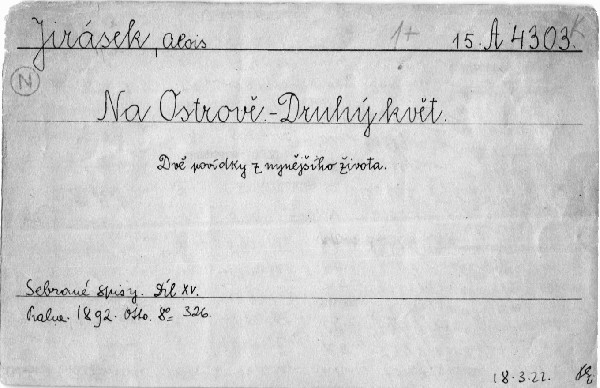 Jirásek, Alois 1+ 15. A 4303. K
N
Na Ostrově.-Druhý květ.
Dvě povídky z nynějšího života.
Sebrané spisy. Díl XV.
Praha. 1892. Otto. 8° 326.
18.3.22.